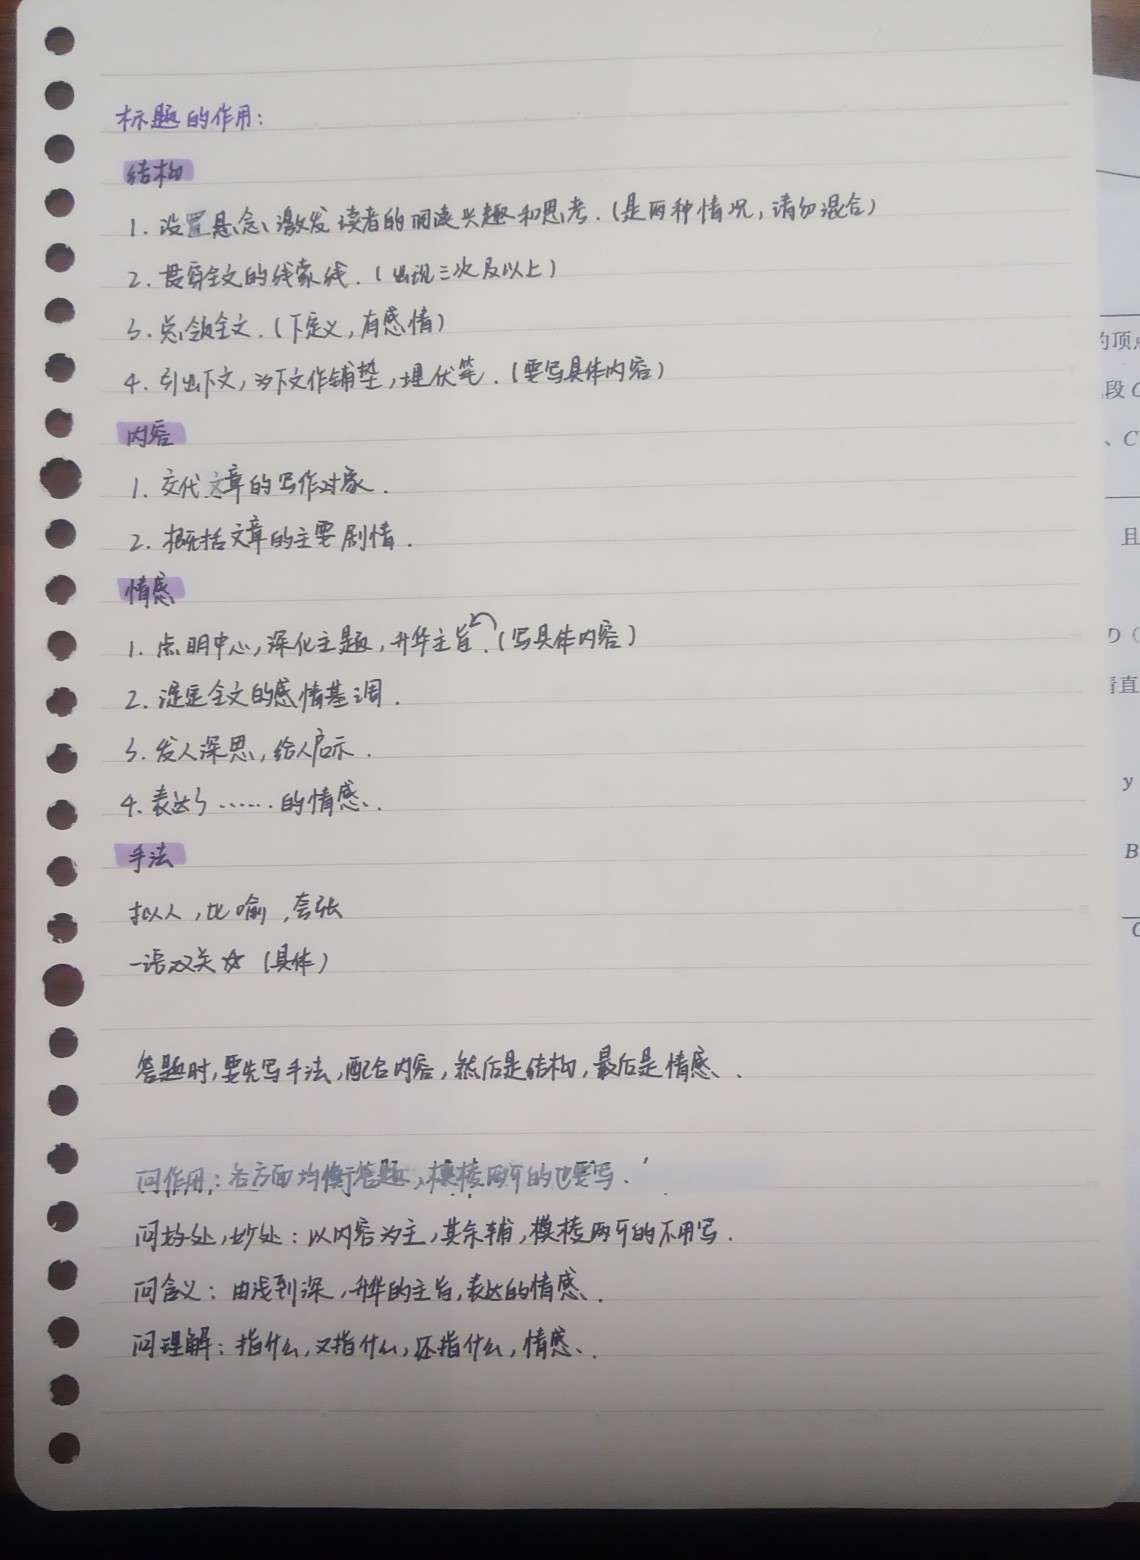 标题的作用:
结构
1. 设置悬念、激发读者的阅读兴趣和思考.(是两种情况,请勿混合)
2. 贯穿全文的线索线.(出现三次及以上)
3. 总领全文.(下定义,有感情)
4. 引出下文,为下文作铺垫,埋伏笔.(要写具体内容)
内容
1. 交代文章的写作对象.
2. 概括文章的主要剧情.
情感
1. 点明中心,深化主题,升华主旨.(写具体内容)
2. 淀定全文的感情基调.
3. 发人深思,给人启示.
4. 表达了……的情感.
手法
拟人,比喻,夸张
一语双关☆(具体)
答题时,要先写手法,配合内容,然后是结构,最后是情感.
问作用:各方面均衡答题,模棱两可的也要写.
问好处,妙处:以内容为主,其余辅,模棱两可的不用写.
问含义:由浅到深,升华的主旨,表达的情感.
问理解:指什么,又指什么,还指什么,情感.
的顶点
段 C
、C
且
D (
直
y
B